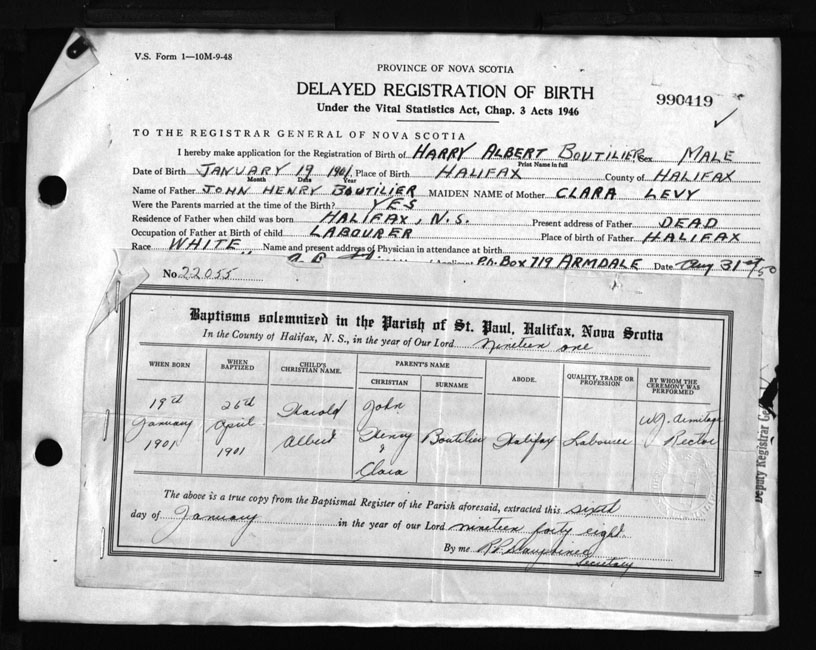 V.S. Form 1—10M-9-48
PROVINCE OF NOVA SCOTIA
DELAYED REGISTRATION OF BIRTH
990419
Under the Vital Statistics Act, Chap. 3 Acts 1946
TO THE REGISTRAR GENERAL OF NOVA SCOTIA
I hereby make application for the Registration of Birth of HARRY ALBERT BOUTILIER Sex MALE
Print Name in full
Date of Birth JANUARY 19 1901, Place of Birth HALIFAX County of HALIFAX
Month Date Year
Name of Father JOHN HENRY BOUTILIER MAIDEN NAME of Mother CLARA LEVY
Were the Parents married at the time of the Birth? YES
Residence of Father when child was born HALIFAX, N.S. Present address of Father DEAD
Occupation of Father at Birth of child LABOURER Place of birth of Father HALIFAX
Race WHITE Name and present address of Physician in attendance at birth
Applicant P.O. BOX 719 ARMDALE Date Aug 31st/50
No. 22055
Baptisms solemnized in the Parish of St. Paul, Halifax, Nova Scotia
In the County of Halifax, N. S., in the year of Our Lord nineteen one
WHEN BORN WHEN BAPTIZED CHILD'S CHRISTIAN NAME. PARENT'S NAME ABODE. QUALITY, TRADE OR PROFESSION BY WHOM THE CEREMONY WAS PERFORMED
CHRISTIAN SURNAME
19th January 1901 26th April 1901 Harold Albert John Henry & Clara Boutilier Halifax Labourer W.J. Armitage Rector
The above is a true copy from the Baptismal Register of the Parish aforesaid, extracted this sixth
day of January in the year of our Lord nineteen forty eight
By me
Secretary
Deputy Registrar